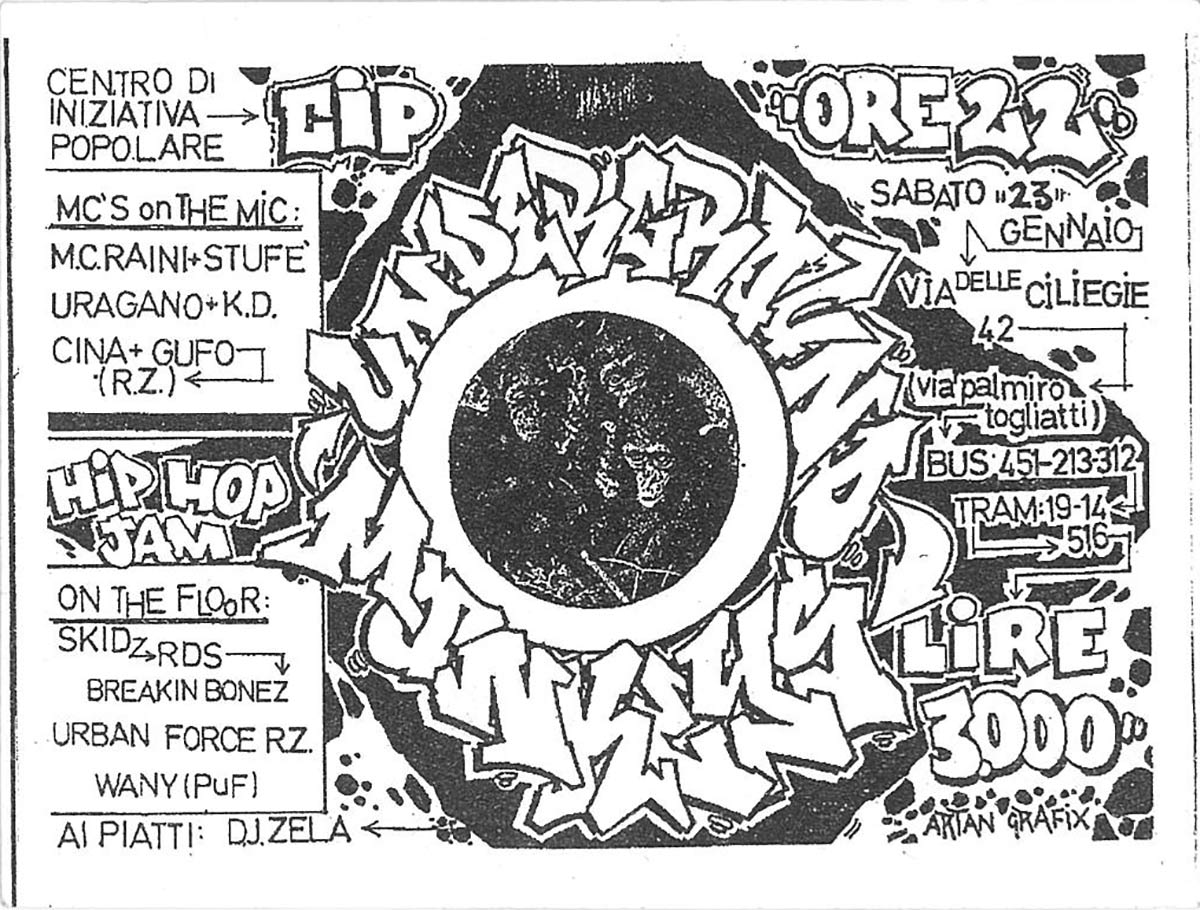 CENTRO DI
INIZIATIVA
POPOLARE
CIP
"ORE 22"
SABATO "23"
GENNAIO
VIA DELLE CILIEGIE
42
(via palmiro
togliatti)
BUS: 451-213-312
TRAM: 19-14
516
LIRE
3.000"
ARTAN GRAFIX
MC'S on THE MIC:
M.C. RAINI + STUFE'
URAGANO + K.D.
CINA + GUFO
(R.Z.)
HIP HOP
JAM
ON THE FLOOR:
SKIDZ RDS
BREAKIN BONEZ
URBAN FORCE R.Z.
WANY (PUF)
AI PIATTI: D.J. ZELA